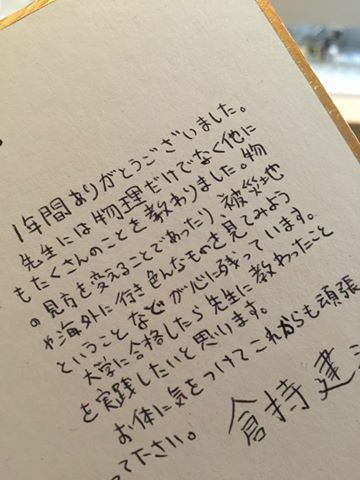 1年間ありがとうございました。
先生には物理だけでなく他に
もたくさんのことを教わりました。物
の見方を変えることであったり、被災地
や海外に行き色んなものを見てみよう
ということなどが心に残っています。
大学に合格したら先生に教わったこと
を実践したいと思います。
お体に気をつけてこれからも頑張
ってください。
倉持 建